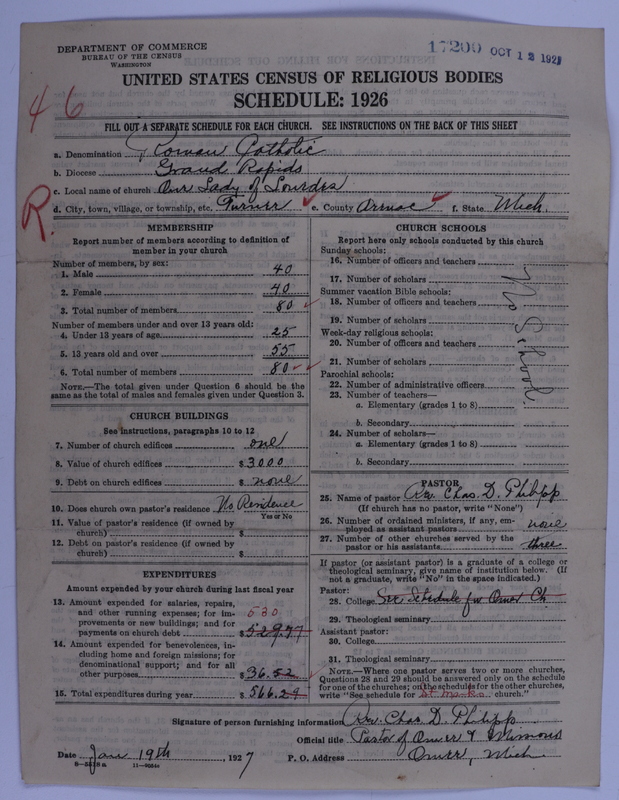 DEPARTMENT OF COMMERCE
BUREAU OF THE CENSUS
WASHINGTON
17200 OCT 12 192
UNITED STATES CENSUS OF RELIGIOUS BODIES
SCHEDULE: 1926
46
FILL OUT A SEPARATE SCHEDULE FOR EACH CHURCH. SEE INSTRUCTIONS ON THE BACK OF THIS SHEET
a. Denomination Roman Catholic
b. Diocese Grand Rapids
c. Local name of church Our Lady of Lourdes
R.
d. City, town, village, or township, etc. Turner e. County Arenac f. State Mich
MEMBERSHIP
Report number of members according to definition of member in your church
Number of members, by sex:
1. Male 40
2. Female 40
3. Total number of members 80
Number of members under and over 13 years old:
4. Under 13 years of age 25
5. 13 years old and over 55
6. Total number of members 80
NOTE.—The total given under Question 6 should be the
same as the total of males and females given under Question 3.
CHURCH BUILDINGS
See instructions, paragraphs 10 to 12
7. Number of church edifices one
8. Value of church edifices $ 3000
9. Debt on church edifices $ none
10. Does church own pastor's residence No Residence
Yes or No
11. Value of pastor's residence (if owned by
church) $
12. Debt on pastor's residence (if owned by
church) $
EXPENDITURES
Amount expended by your church during last fiscal year
13. Amount expended for salaries, repairs,
and other running expenses; for im- 530
provements or new buildings; and for
payments on church debt $ 529.77
14. Amount expended for benevolences, in-
cluding home and foreign missions; for
denominational support; and for all
other purposes $ 36.52
15. Total expenditures during year $ 566.29
CHURCH SCHOOLS
Report here only schools conducted by this church
Sunday schools:
16. Number of officers and teachers
17. Number of scholars
Summer vacation Bible schools:
18. Number of officers and teachers
19. Number of scholars
Week-day religious schools:
20. Number of officers and teachers
21. Number of scholars
Parochial schools:
22. Number of administrative officers
23. Number of teachers—
a. Elementary (grades 1 to 8)
b. Secondary
24. Number of scholars—
a. Elementary (grades 1 to 8)
b. Secondary
No School.
PASTOR
25. Name of pastor Rev. Chas. D. Philipp
(If church has no pastor, write "None")
26. Number of ordained ministers, if any, em-
ployed as assistant pastors none
27. Number of other churches served by the
pastor or his assistants three
If pastor (or assistant pastor) is a graduate of a college or
theological seminary, give name of institution below. (If
not a graduate, write "No" in the space indicated.)
Pastor:
28. College See Schedule for Omer Ch
29. Theological seminary
Assistant pastor:
30. College
31. Theological seminary
NOTE.—Where one pastor serves two or more churches,
Questions 28 and 29 should be answered only on the schedule
for one of the churches; on the schedules for the other churches,
write "See schedule for church."
Signature of person furnishing information Rev. Chas. D. Philipp
Official title Pastor of Omer & Missions
Date Jan 19th, 1927 P. O. Address Omer, Mich